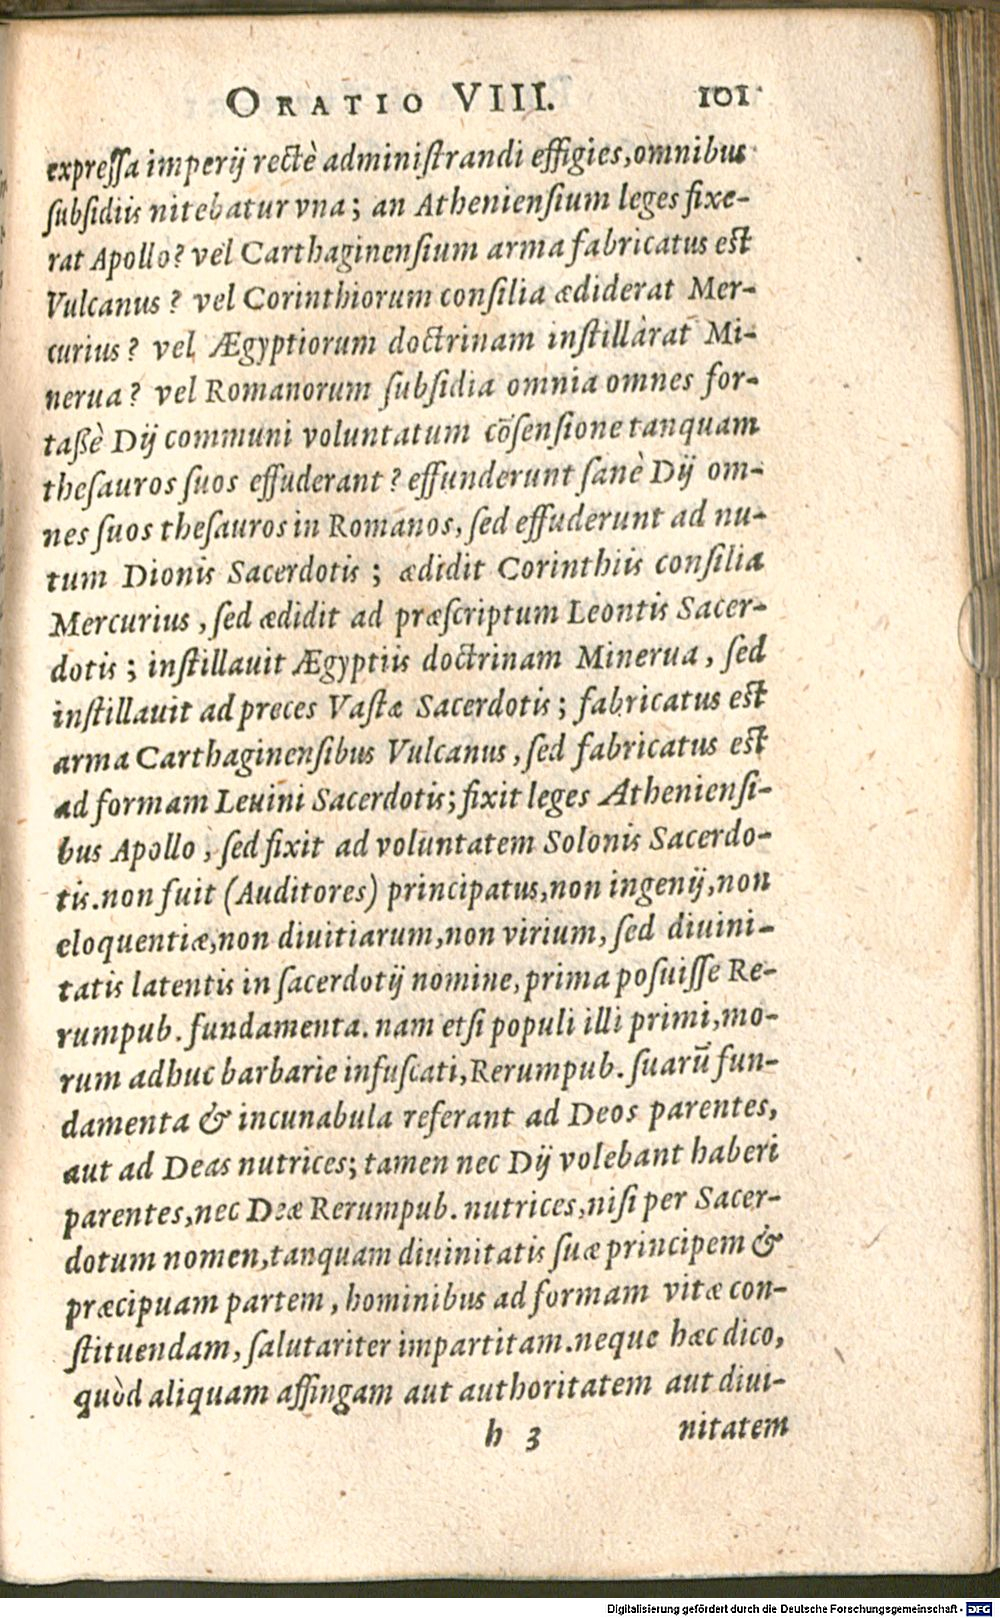 ORATIO VIII. 101
expreſſa imperij rectè adminiſtrandi effigies, omnibus
ſubſidiis nitebatur vna; an Athenienſium leges fixe-
rat Apollo? vel Carthaginenſium arma fabricatus est
Vulcanus? vel Corinthiorum conſilia ædiderat Mer-
curius? vel Ægyptiorum doctrinam inſtillàrat Mi-
nerua? vel Romanorum ſubſidia omnia omnes for-
taßè Dij communi voluntatum cõſenſione tanquam
theſauros ſuos effuderant? effunderunt ſanè Dij om-
nes ſuos theſauros in Romanos, ſed effuderunt ad nu-
tum Dionis Sacerdotis; ædidit Corinthiis conſilia
Mercurius, ſed ædidit ad præſcriptum Leontis Sacer-
dotis; inſtillauit Ægyptiis doctrinam Minerua, ſed
inſtillauit ad preces Vaſtæ Sacerdotis; fabricatus est
arma Carthaginenſibus Vulcanus, ſed fabricatus est
ad formam Leuini Sacerdotis; fixit leges Athenienſi-
bus Apollo, ſed fixit ad voluntatem Solonis Sacerdo-
tis. non fuit (Auditores) principatus, non ingenij, non
eloquentiæ, non diuitiarum, non virium, ſed diuini-
tatis latentis in ſacerdotij nomine, prima poſuiſſe Re-
rumpub. fundamenta. nam etſi populi illi primi, mo-
rum adhuc barbarie infuſcati, Rerumpub. ſuarũ fun-
damenta & incunabula referant ad Deos parentes,
aut ad Deas nutrices; tamen nec Dij volebant haberi
parentes, nec Deæ Rerumpub. nutrices, niſi per Sacer-
dotum nomen, tanquam diuinitatis ſuæ principem &
præcipuam partem, hominibus ad formam vitæ con-
ſtituendam, ſalutariter impartitam. neque hæc dico,
quòd aliquam affingam aut authoritatem aut diui-
h 3 nitatem
Digitalisierung gefördert durch die Deutsche Forschungsgemeinschaft - DFG